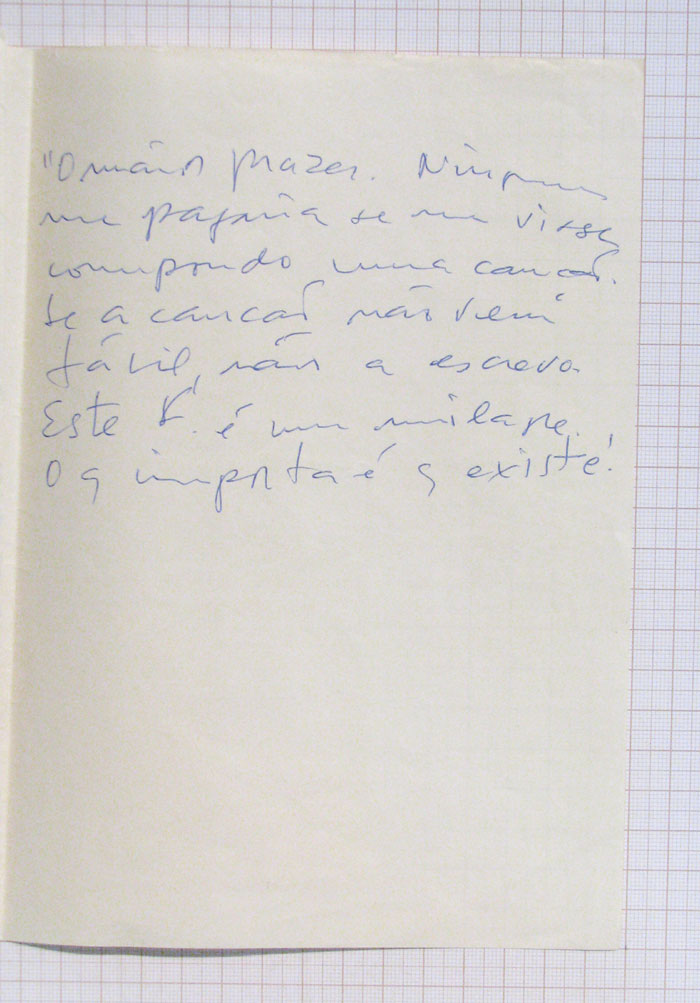 "O maior prazer. Ninguem
me pagaria se me visse
compondo uma canção.
Se a canção não vem
fácil, não a escrevo.
Este é um milagre.
O q importa é q existe!